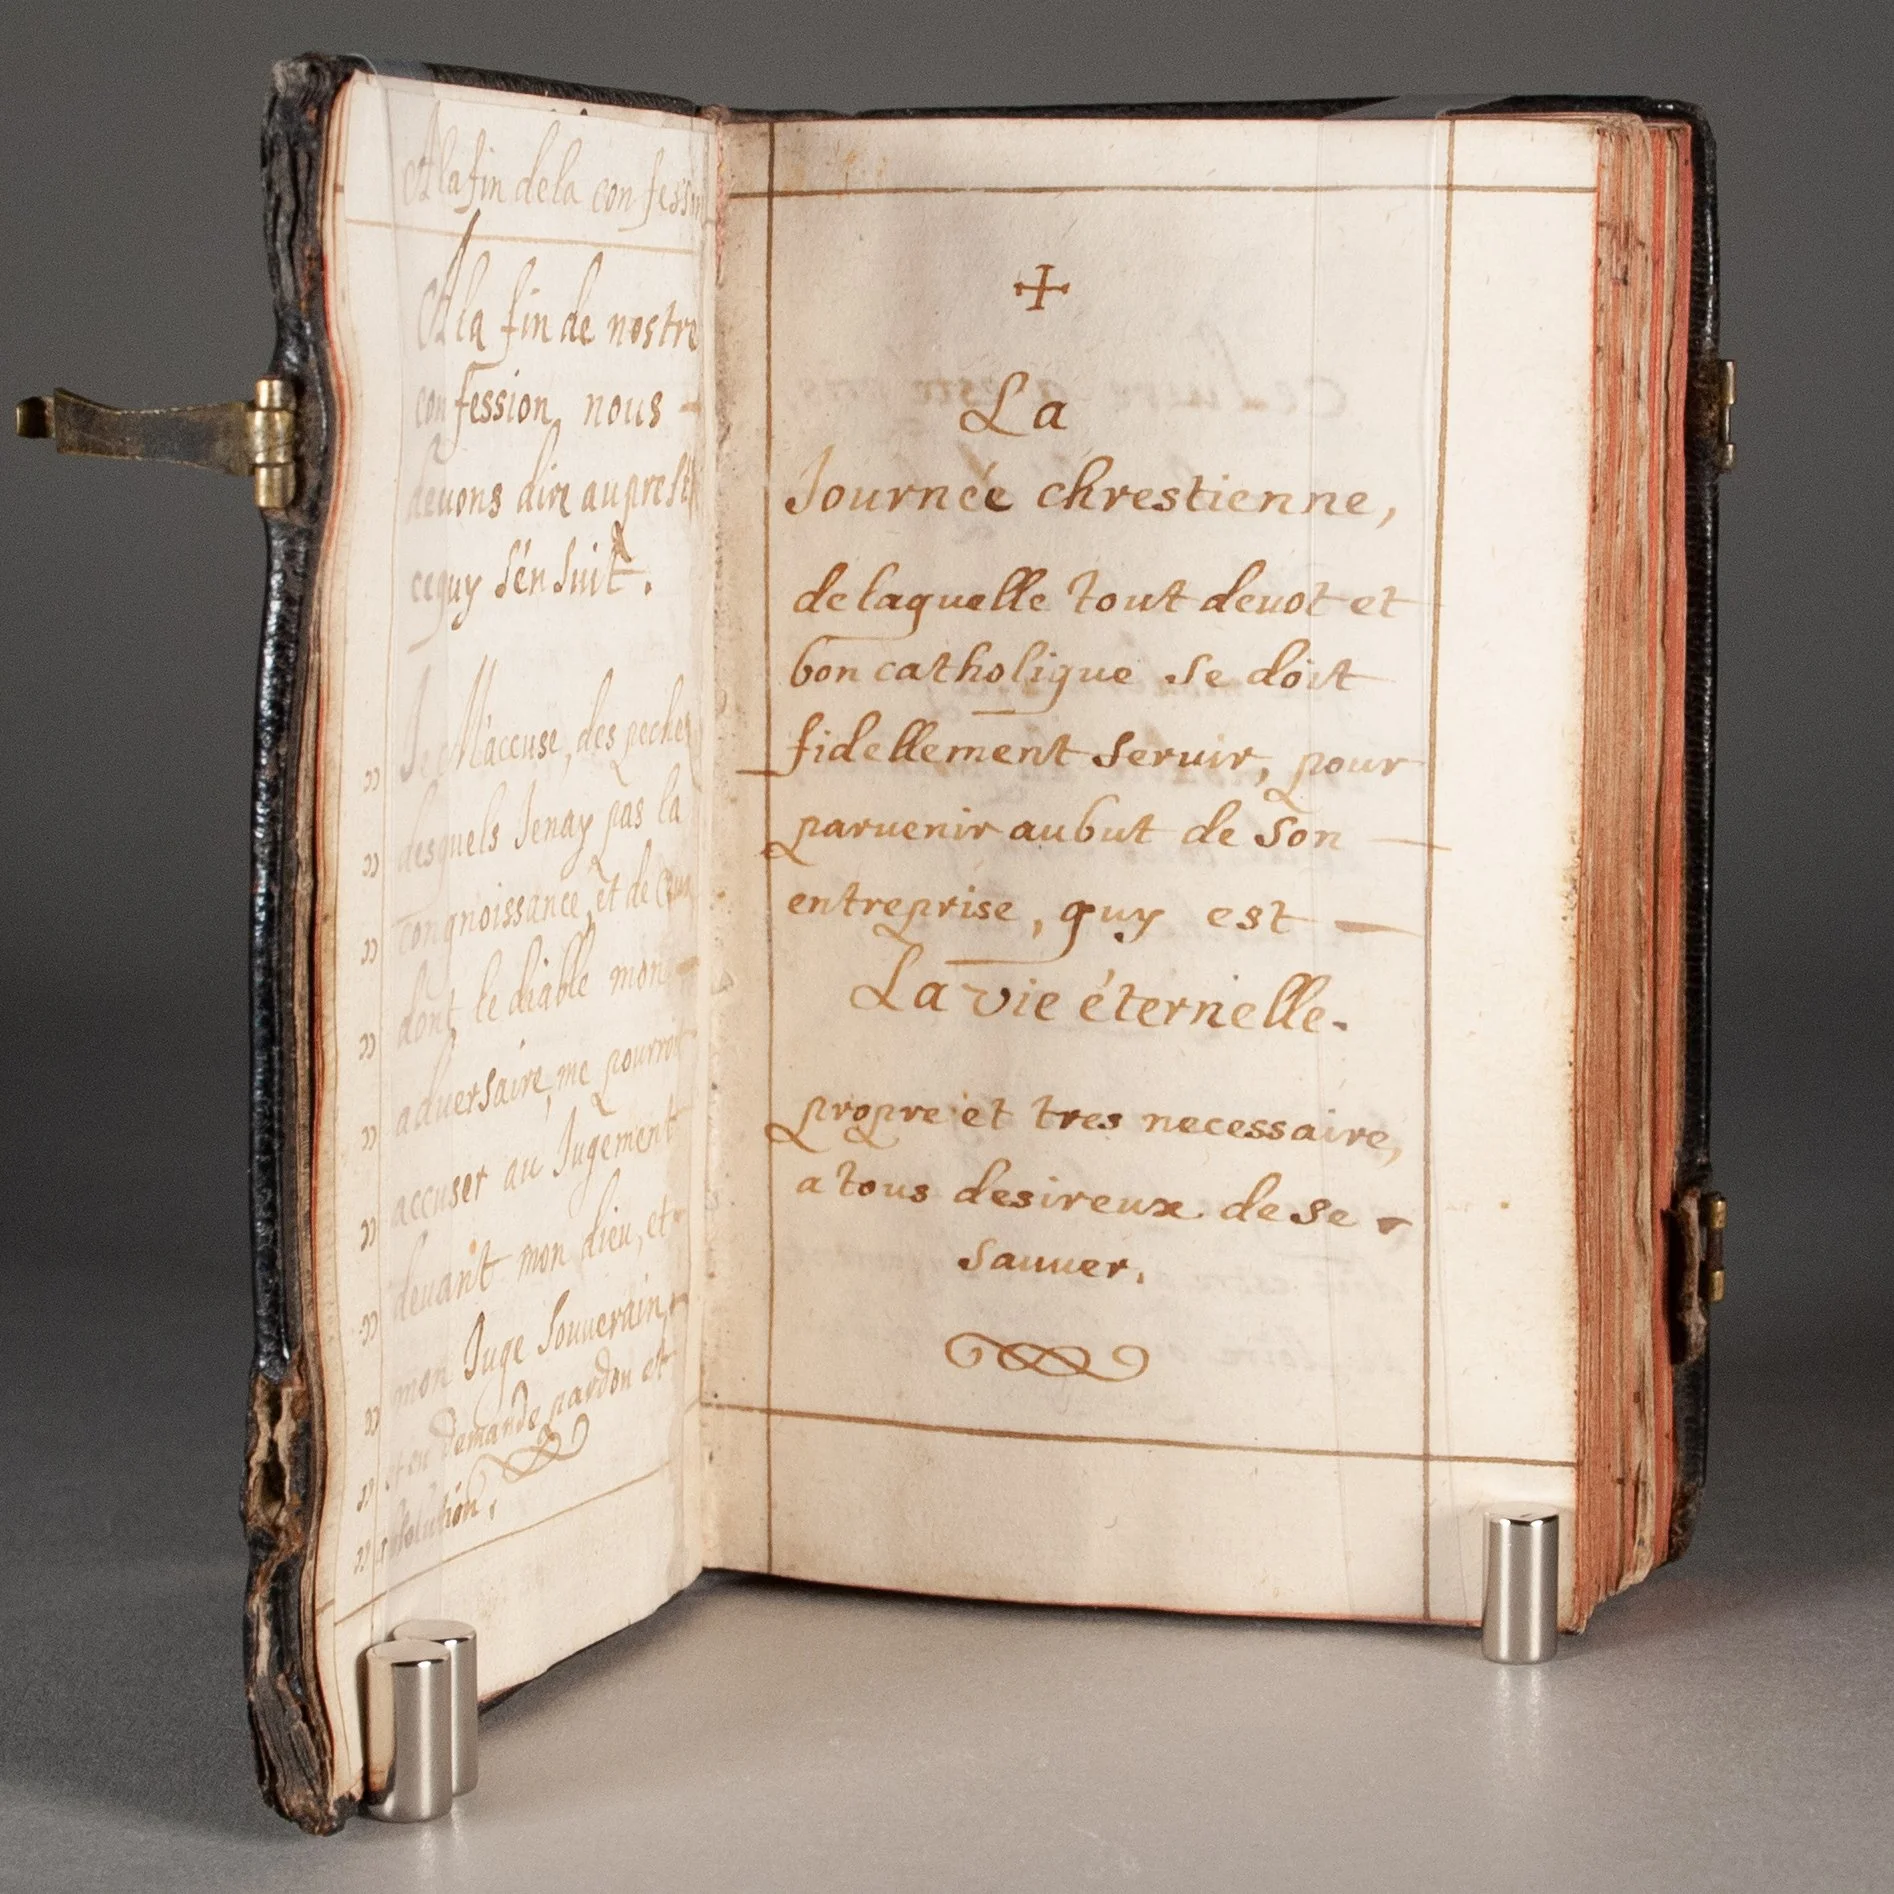 A la fin de la confession
A la fin de nostre
confession, nous
deuons dire au prestre
cequy s'én suit.
Je M'accuse, des pechez
desquels Jenay pas la
congnoissance, et de ceux
dont le diable mon
aduersaire, me pourroit
accuser au Jugement
deuant mon dieu, et
mon Juge Souuerain,
et en demande pardon et
absolution.
La
Journée chrestienne,
de laquelle tout deuot et
bon catholique se doit
fidellement seruir, pour
paruenir au but de son
entreprise, quy est
La vie éternelle.
propre et tres necessaire,
a tous desireux de se
sauuer.